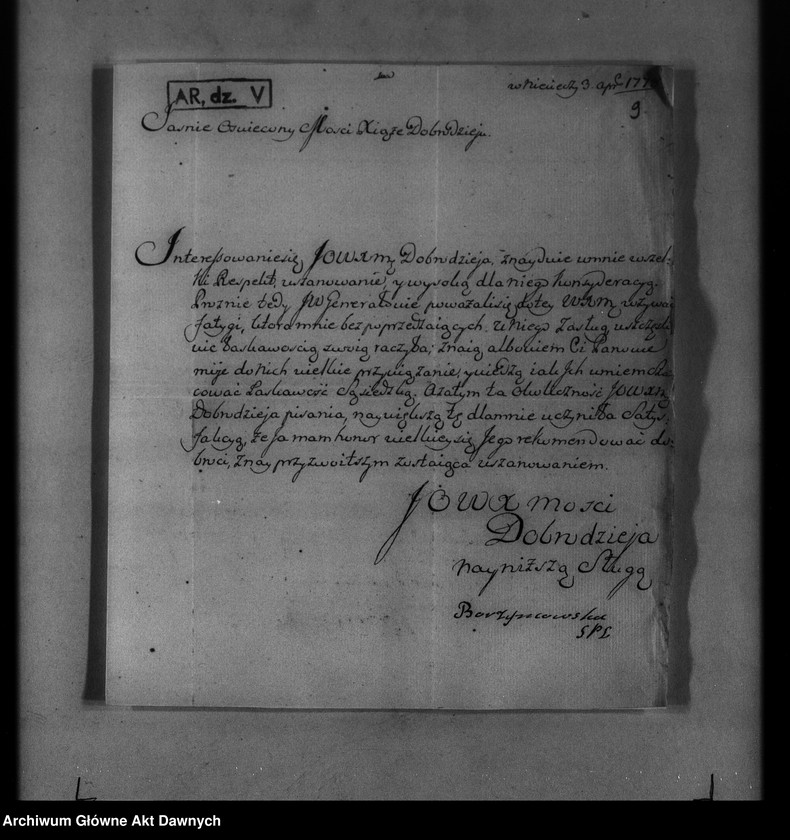 AR, dz. V
3. apr. 177
9
Jasnie Oswiecony Mosci Xiąże Dobrodzieju.
Interessowaniesię JOWXMy Dobrodzieja, znayduie wmnie wszel-
ki Respekt, uszanowanie, y wysoką dla niego konsyderacyą.
tedy JWGenerałowie poważalisię dotey WXM. używać
fatygi, ktora mnie bez poprzedzaiących uniego Zasług uszczęśli
wić łaskawoscią swoią raczyła; znaią albowiem Ci Panowie
moje do nich wielkie przywiązanie, ywiedzą iak Ich umiem
cować Łaskawość Sąsiedzką. Azatym ta okoliczność JOWXM
Dobrodzieja pisania, naywiększą tę dlamnie uczyniła Satys-
fakcyą, że Ja mam honor wielkiey się Jego rekomendować do-
broci, znay przyzwoitszym zostaiąca uszanowaniem.
JOWXMosci
Dobrodzieja
nayniższą Sługą